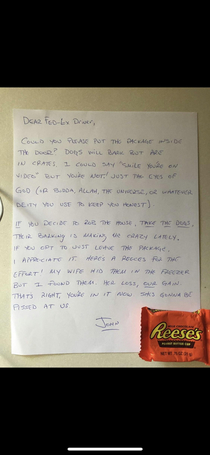 DEAR FED-EX DRIVER,
COULD YOU PLEASE PUT THE PACKAGE INSIDE
THE DOOR? DOGS WILL BARK BUT ARE
IN CRATES. I COULD SAY "SMILE YOU'RE ON
VIDEO" BUT YOU'RE NOT! JUST THE EYES OF
GOD (OR BUDDA, ALLAH, THE UNIVERSE, OR WHATEVER
DEITY YOU USE TO KEEP YOU HONEST)
IF YOU DECIDE TO ROB THE HOUSE, TAKE THE DOGS,
THEIR BARKING IS MAKING ME CRAZY LATELY.
IF YOU OPT TO JUST LEAVE THE PACKAGE,
I APPRECIATE IT. HERE'S A REECES FOR THE
EFFORT! MY WIFE HID THEM IN THE FREEZER
BUT I FOUND THEM. HER LOSS, OUR GAIN.
THAT'S RIGHT, YOU'RE IN IT NOW. SHE'S GONNA BE
PISSED AT US.
Reese's
PEANUT BUTTER CUP